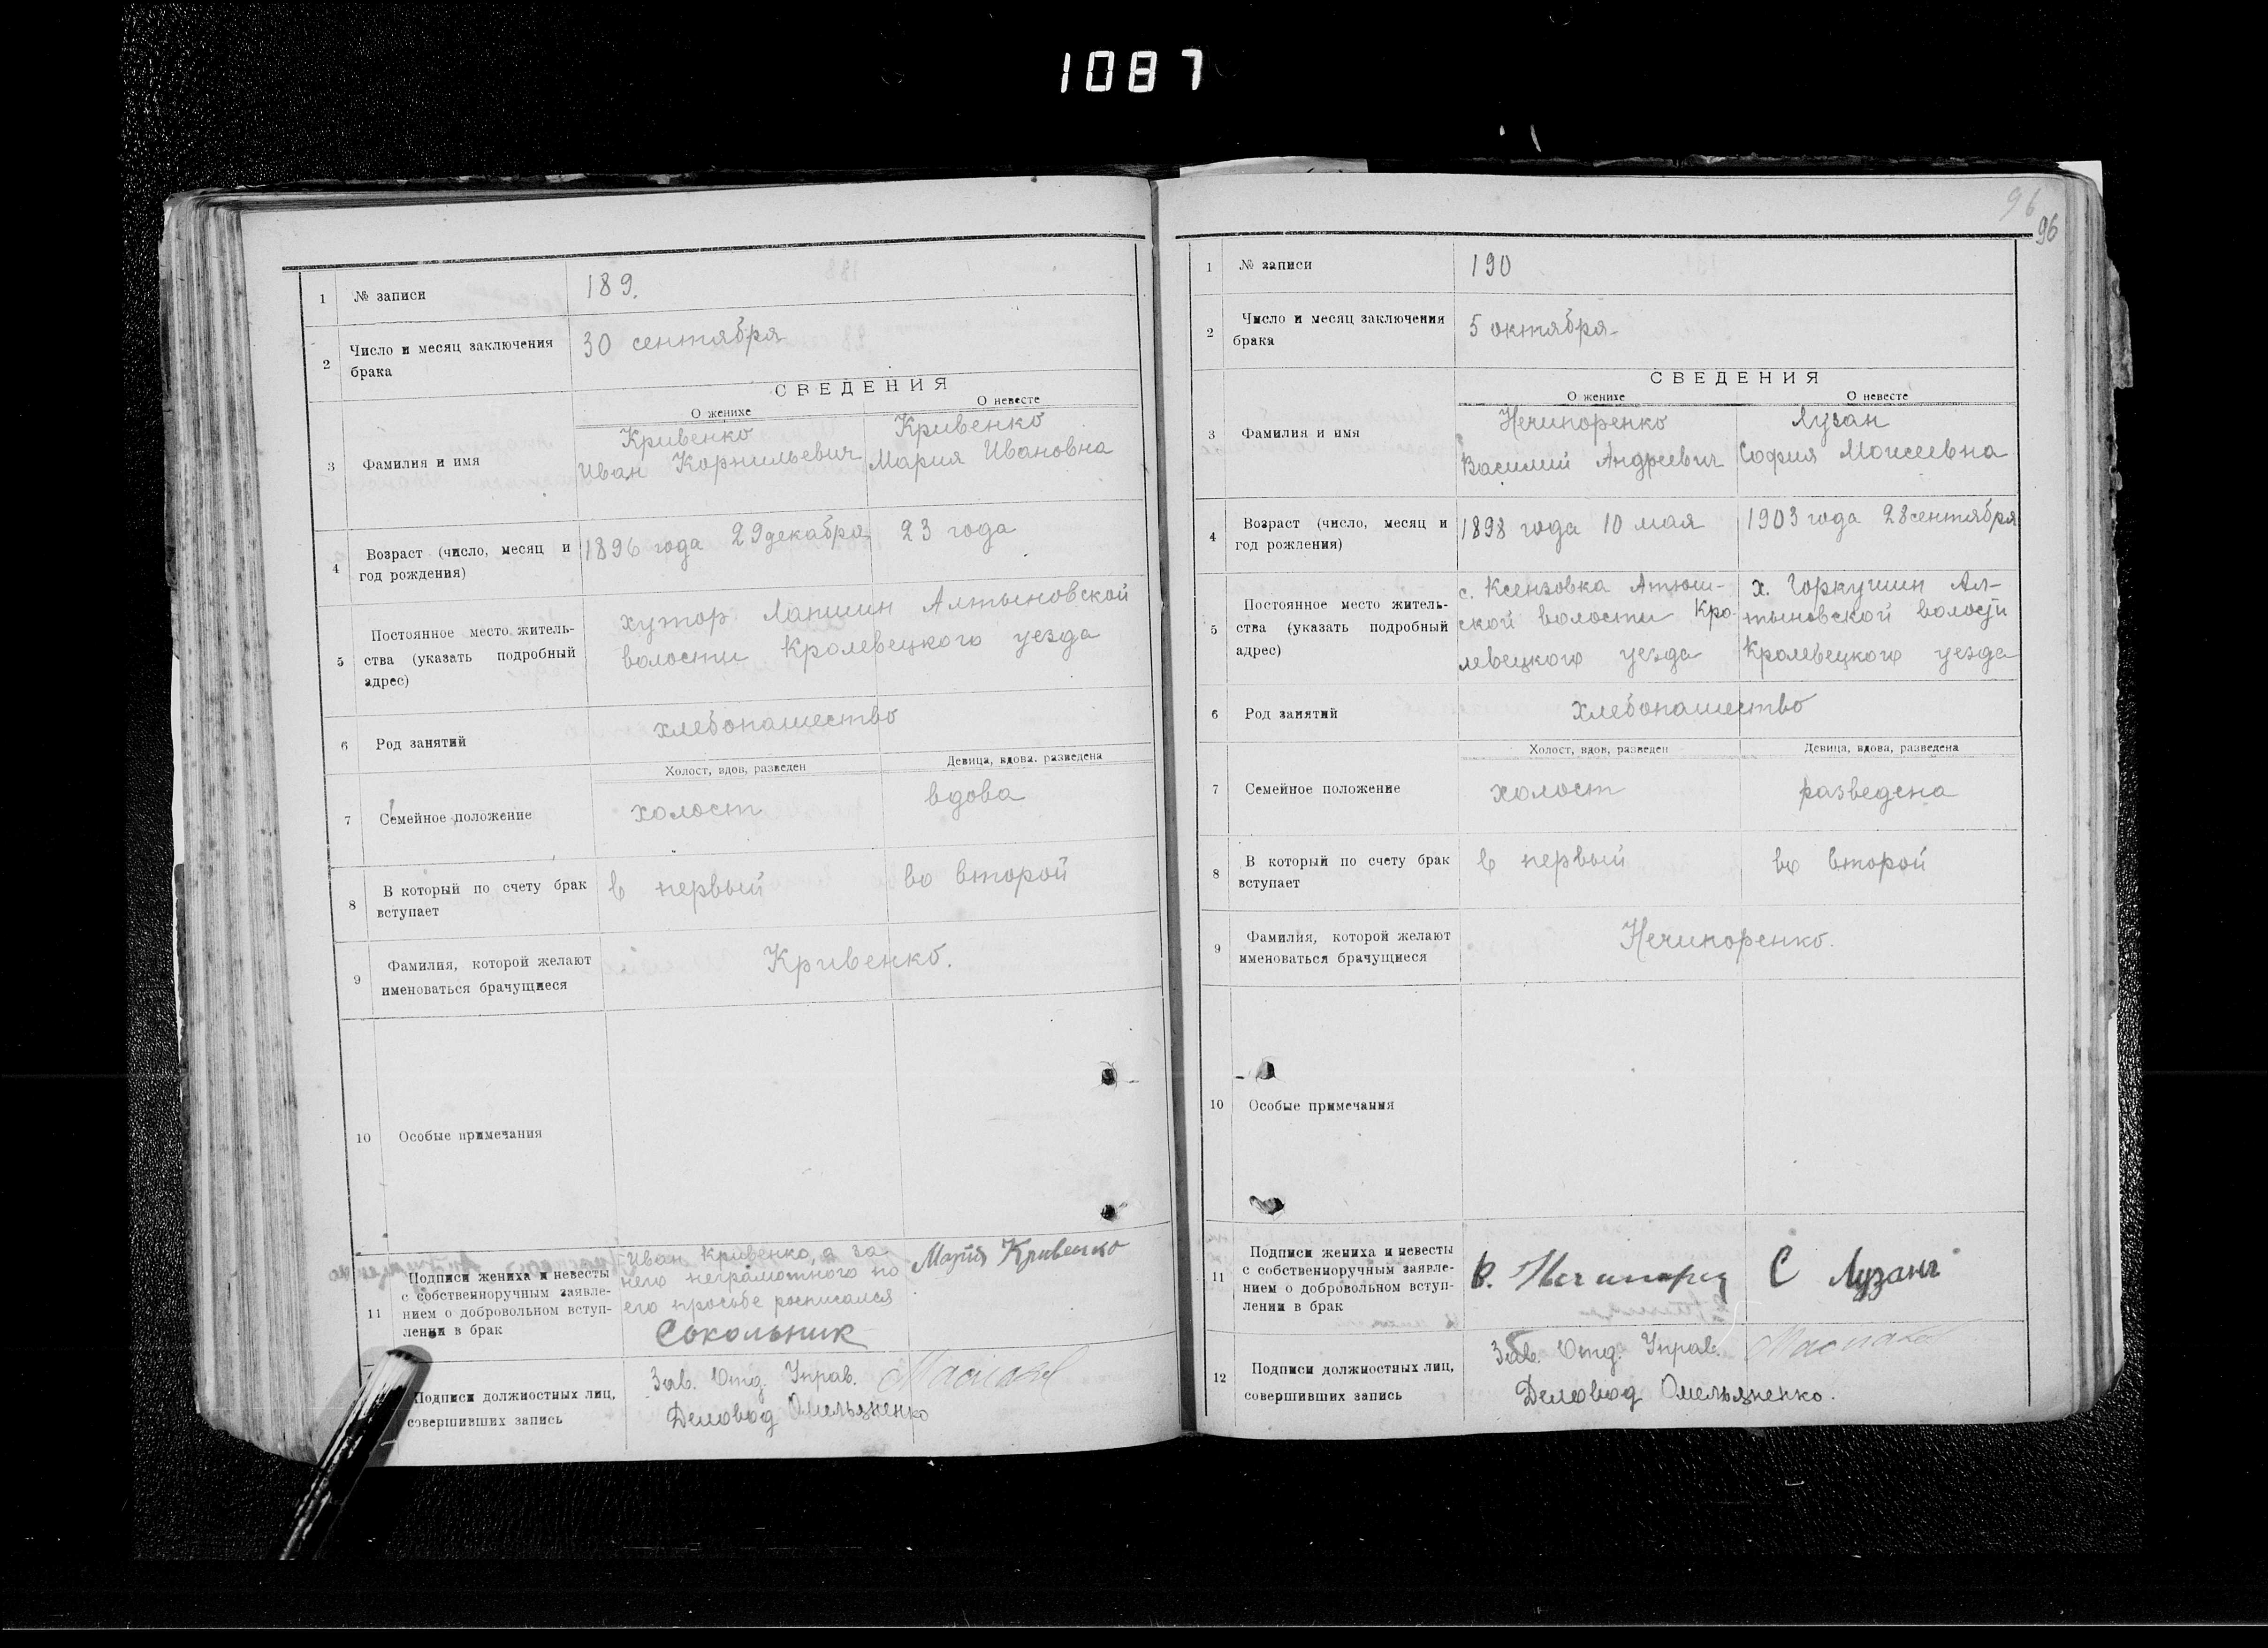 1087
1 № записи 189.
2 Число и месяц заключения
брака
30 сентября
СВЕДЕНИЯ
О женихе О невесте
3 Фамилия и имя
Кривенко
Иван Корнильевич
Кривенко
Мария Ивановна
4 Возраст (число, месяц и
год рождения)
1896 года 29 декабря 23 года
5 Постоянное место житель-
ства (указать подробный
адрес)
хутор Лапшин Алтыновской
волости Кролевецкого уезда
6 Род занятий
хлебопашество
Холост, вдов, разведен Девица, вдова. разведена
7 Семейное положение
холост вдова
8 В который по счету брак
вступает
в первый во второй
9 Фамилия, которой желают
именоваться брачущиеся
Кривенко.
10 Особые примечания
11 Подписи жениха и невесты
с собственноручным заявле-
нием о добровольном вступ-
лении в брак
Иван Кривенко, а за
него неграмотного по
его просьбе росписался
Сокольник
Марія Кривенко
Подписи должностных лиц,
совершивших запись
Зав. Отд. Управ.
Деловод Омельяненко
96
96
1 № записи 190
2 Число и месяц заключения
брака
5 октября
СВЕДЕНИЯ
О женихе О невесте
3 Фамилия и имя
Нечипоренко
Василий Андреевич
Лузан
София Моисеевна
4 Возраст (число, месяц и
год рождения)
1898 года 10 мая 1903 года 28 сентября
5 Постоянное место житель-
ства (указать подробный
адрес)
с. Ксензовка Атюш-
ской волости Кро-
левецкого уезда
х. Горкушин Ал-
тыновской волости
Кролевецкого уезда
6 Род занятий
хлебопашество
Холост, вдов, разведен Девица, вдова, разведена
7 Семейное положение
холост разведена
8 В который по счету брак
вступает
в первый во второй
9 Фамилия, которой желают
именоваться брачущиеся
Нечипоренко.
10 Особые примечания
11 Подписи жениха и невесты
с собственноручным заявле-
нием о добровольном вступ-
лении в брак
В. С Лузанъ
12 Подписи должностных лиц,
совершивших запись
Зав. Отд. Управ.
Деловод Омельяненко.